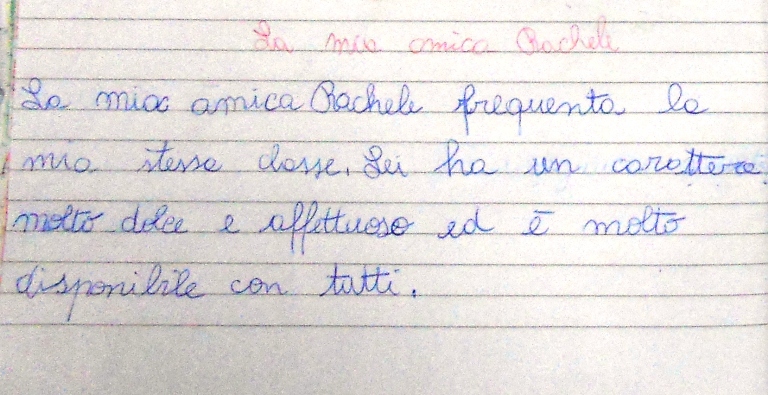 La mia amica Rachele
La mia amica Rachele frequenta la
mia stessa classe. Lei ha un carattere
molto dolce e affettuoso ed è molto
disponibile con tutti.